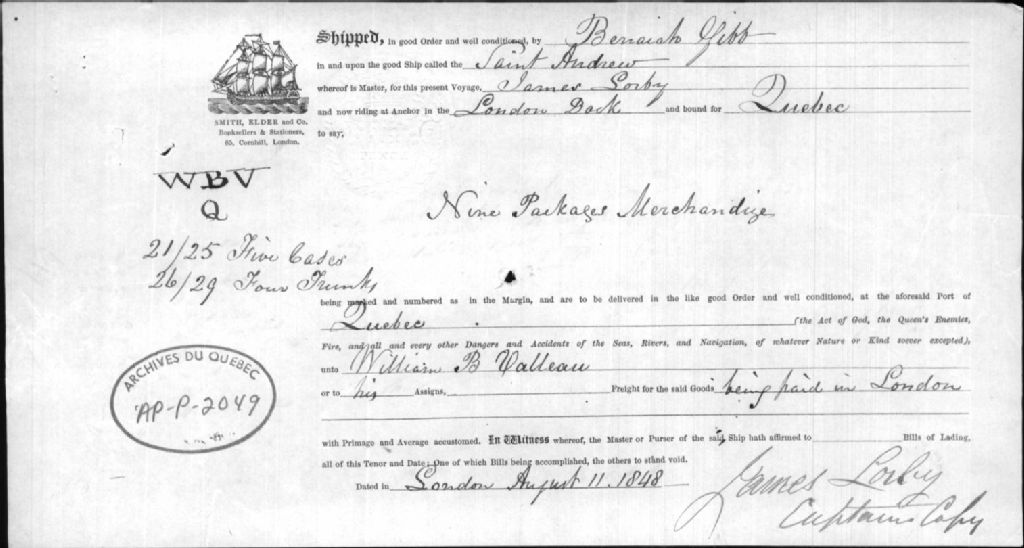 Shipped, in good Order and well conditioned, by Benaiah Gibb
in and upon the good Ship called the Saint Andrew
whereof is Master, for this present Voyage, James Lorby
and now riding at Anchor in the London Dock and bound for Quebec
to say,
SMITH, ELDER and Co.
Booksellers & Stationers,
65, Cornhill, London.
WBV
Q
Nine Packages Merchandize
21/25 Five Cases
26/29 Four Trunks
being marked and numbered as in the Margin, and are to be delivered in the like good Order and well conditioned, at the aforesaid Port of
Quebec (the Act of God, the Queen's Enemies,
Fire, and all and every other Dangers and Accidents of the Seas, Rivers, and Navigation, of whatever Nature or Kind soever excepted),
unto William B Valleau
or to his Assigns, Freight for the said Goods being paid in London
with Primage and Average accustomed. In Witness whereof, the Master or Purser of the said Ship hath affirmed to Bills of Lading,
all of this Tenor and Date; One of which Bills being accomplished, the others to stand void.
Dated in London August 11. 1848
James Lorby
Captains Copy
ARCHIVES DU QUEBEC
AP-P-2049